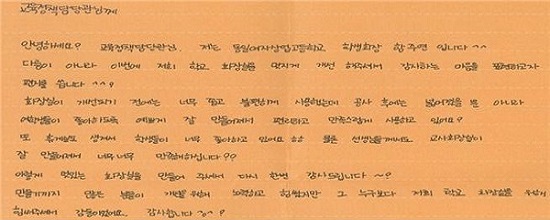 교육정책담당관님께
안녕하세요? 교육정책담당관님. 저는 동일여자상업고등학교 학생회장 함주연 입니다^^
다름이 아니라 이번에 저희 학교 화장실을 멋지게 개선 해주셔서 감사하는 마음을 표현하고자
편지를 씁니다^^?
화장실이 개선되기 전에는 너무 좁고 불편하게 사용했는데 공사 후에는 넓어졌을 뿐 아니라
여학생들이 좋아하도록 예쁘게 잘 만들어져서 편리하고 만족스럽게 사용하고 있어요?
또 휴게실도 생겨서 학생들이 너무 좋아하고 있어요 물론 선생님들께서도 교사화장실이
잘 만들어져서 너무너무 만족해하십니다??
이렇게 멋있는 화장실을 만들어 주셔서 다시 한번 감사드립니다~?
만들기까지 많은 분들이 개선을 위해 노력하고 힘썼지만 그 누구보다 저희 학교 화장실을 위해
힘써주셔서 감동이었어요. 감사합니다